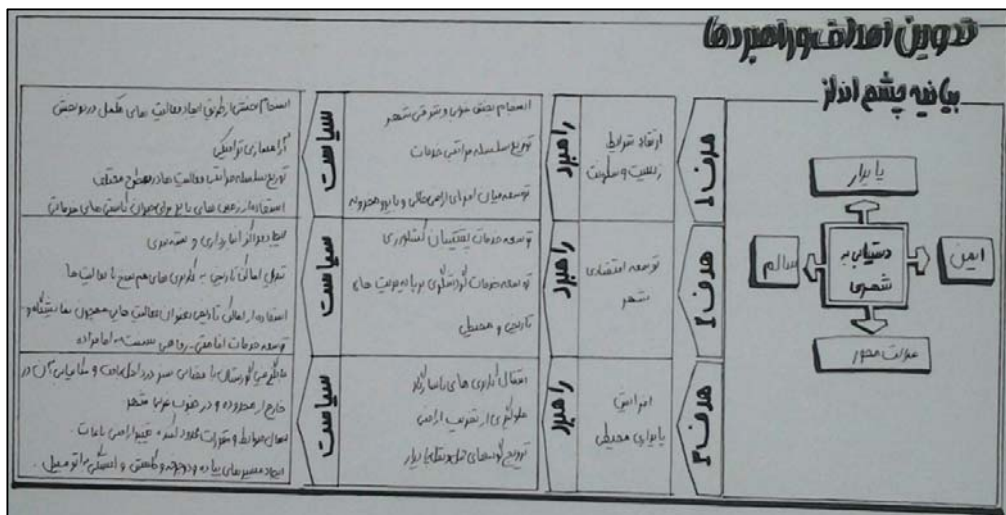 تدوین اهداف و راهبردها
بیانیه چشم انداز
پایدار
ایمن
دستیابی به
شهری
سالم
عدالت محور
هدف ۱
ارتقاء شرایط
زیست و سکونت
راهبرد
انسجام بخش
شهر
توزیع سلسله مراتبی خدمات
توسعه میان افزای اراضی خالی و بایر و مخروبه
سیاست
انسجام بخشی از طریق ایجاد فعالیت های مکمل در دو بخش
آرامسازی ترافیکی
توزیع سلسله مراتبی فعالیت ها در سطوح مختلف
استفاده از زمین های بایر برای جبران کاستی های خدماتی
هدف ۲
توسعه اقتصادی
شهر
راهبرد
توسعه خدمات پشتیبان کشاورزی
توسعه خدمات گردشگری بر پایه مزیت های
تاریخی و محیطی
سیاست
انبارداری و بسته بندی
تبدیل اماکن تاریخی به کاربری های هم پیوند با فعالیت ها
استفاده از اماکن تاریخی بعنوان فعالیت هایی همچون نمایشگاه و
توسعه خدمات اقامتی - رفاهی امامزاده
هدف ۳
افزایش
پایداری محیطی
راهبرد
انتقال کاربری های ناسازگار
جلوگیری از تخریب اراضی
ترویج گونه های حمل و نقل پایدار
سیاست
جایگزینی گورستان با فضای سبز در داخل بافت و مکانیابی آن در
خارج از محدوده و در جنوب غربی شهر
اعمال ضوابط و مقررات محدود کننده تغییر اراضی باغات.
ایجاد مسیرهای پیاده و دوچرخه و کاستن وابستگی به اتومبیل.